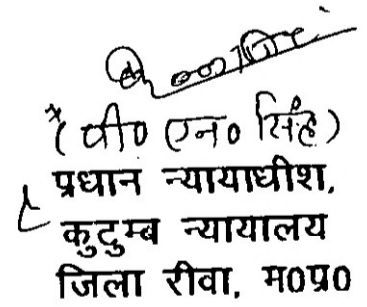 (वी० एन० सिंह)
प्रधान न्यायाधीश,
कुटुम्ब न्यायालय
जिला रीवा, म०प्र०